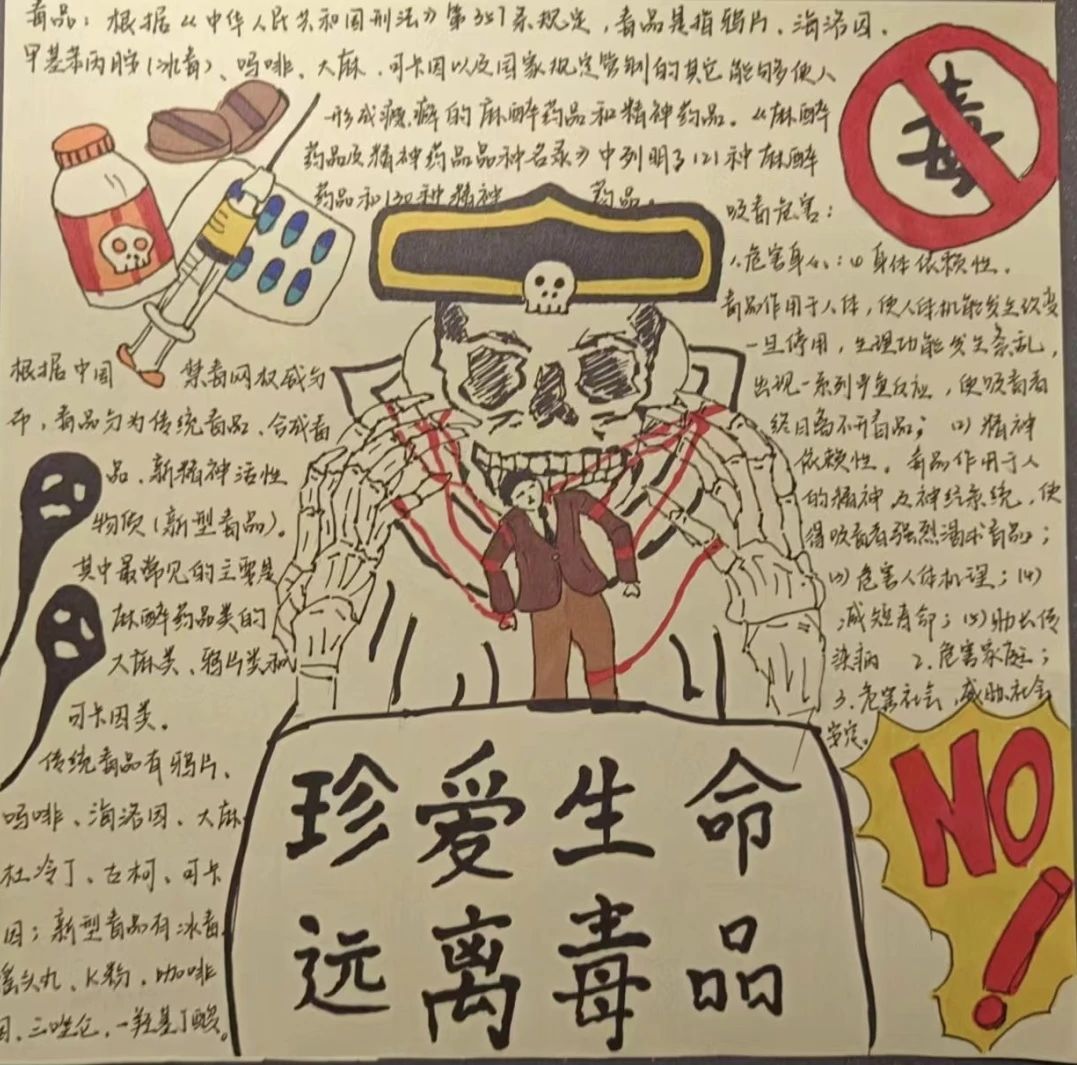 毒品：根据《中华人民共和国刑法》第357条规定，毒品是指鸦片、海洛因、
甲基苯丙胺（冰毒）、吗啡、大麻、可卡因以及国家规定管制的其它能够使人
形成瘾癖的麻醉药品和精神药品。《麻醉
药品及精神药品品种名录》中列明了121种麻醉
药品和130种精神 药品。
毒
吸毒危害：
1.危害身心：(1)身体依赖性。
毒品作用于人体，使人体机能发生改变
一旦停用，生理功能发生紊乱，
出现一系列严重反应，使吸毒者
终日离不开毒品；(2)精神
依赖性。毒品作用于人
的精神及神经系统，使
得吸毒者强烈渴求毒品；
(3)危害人体机理；(4)
减短寿命；(5)助长传
染病 2.危害家庭；
3.危害社会，威胁社会
安定。
根据中国 禁毒网权威分
布，毒品分为传统毒品、合成毒
品、新精神活性
物质（新型毒品）。
其中最常见的主要是
麻醉药品类的
大麻类、鸦片类和
可卡因类。
传统毒品有鸦片、
吗啡、海洛因、大麻
杜冷丁、古柯、可卡
因；新型毒品有冰毒、
摇头丸、K粉、咖啡
因、三唑仑、一羟基丁酸。
珍爱生命
远离毒品
NO!